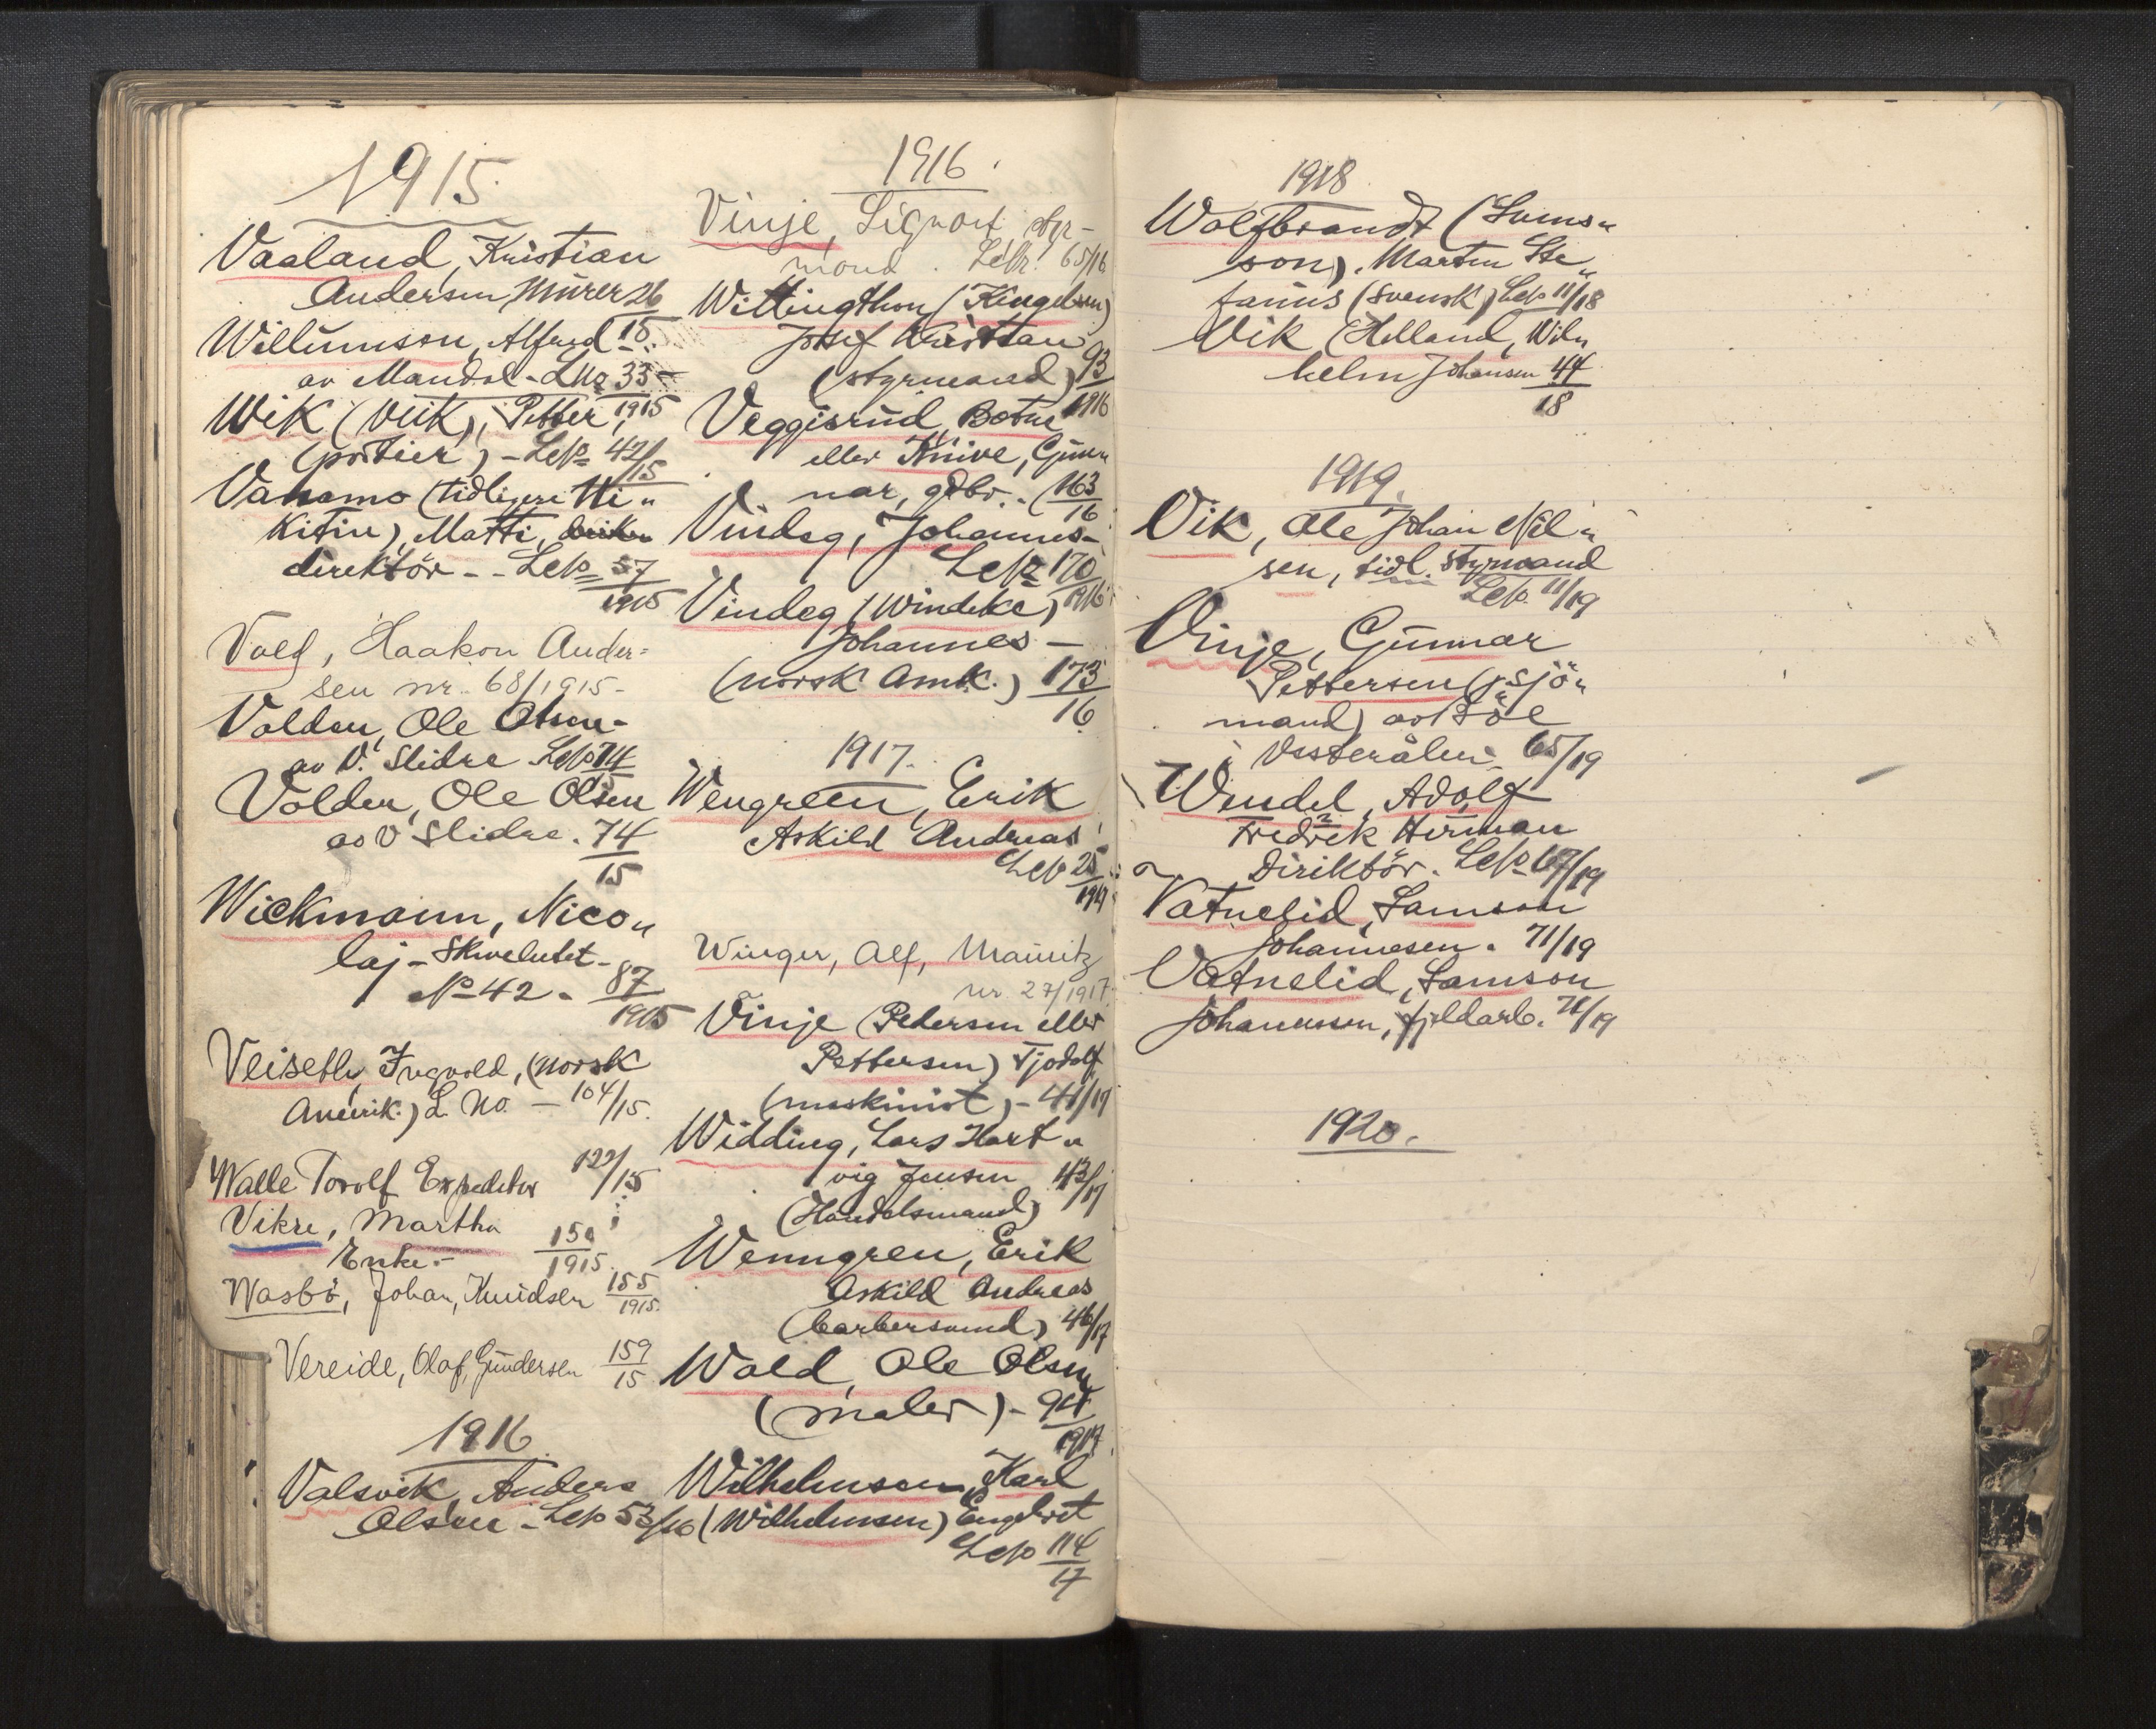 1915.
Vaaland, Kristian
Andersen Mürer 26
Willumson, Alfred 15.
av Mandal - LNo 33
Wik (Viik), Petter, 1915
(portier) - Lep 42/15
Vanamo (tidligere Ni„
Kitin), Matti,
direktör - - Lep 57
1915
Volf, Haakon Ander=
sen nr. 68/1915 -
Volden, Ole Olsen -
av V. Slidre Lep 74
15
Volden, Ole Olsen
av V Slidre. 74
15
Wickmann, Nico„
laj - Skovelutet -
No 42 - 87
1915
Veiseth, Ingvald, (norsk
Amerik.) L. No. - 104/15.
Walle Torolf Expeditør 122/15
Vikre, Martha 150
Enke - 1915.
Wasbö, Johan, Knüdsen 155
1915.
Vereide, Olaf, Gündersen 159
15
1916.
Valsvik, Anders
Olsen - Lep 53/16
1916.
Vinje, Sigvart, styr-
mand. Lepr. 65/16
Wittingthon (Kingelsen)
Josef Kristian
(styrmand) 93
1916
Veggisrud, Botne
eller Knive, Gün„
nar, gdbr. - (163
16
Vindeg, Johannes -
Lep 170
1916
Vindeg (Windeke)
Johannes -
(norsk Amk.) 173
16
1917.
Wengreen, Erik
Askild Andreas
Lep 25
1917
Winger, Alf, Mauritz
nr. 27/1917.
Vinje (Pedersen eller
Pettersen) Tjodolf
(maskinist) - 41/17
Widding, Lars Hart„
vig Jensen 43/17
(Handelsmand)
Wenngren, Erik
Askild Andreas
(barbersvend) 46/17
Wold, Ole Olsen
(maler) - 94
1917.
Wilhelmsen, Karl
(Wilhelmsen) Engelbret
Lep 114
17
1918
Wolfbrandt (Svens„
son), Martin Ste„
fanus (Svensk) Lep 11/18
Vik (Helland, Wil„
helm Johansen 44
18
1919.
Vik, Ole Johan Nil„
sen, tidl. styrmand
Lep. 11/19
Vinje, Gunnar
Pettersen (sjö„
mand) av Böe
i Vesterålen 65/19
Wendel, Adolf
Fredrik Herman
Direktör. Lep 67/19
Vatnelid, Samson
Johannesen. 71/19
Vatnelid, Samson
Johannesen, fjeldarb. 71/19
1920.